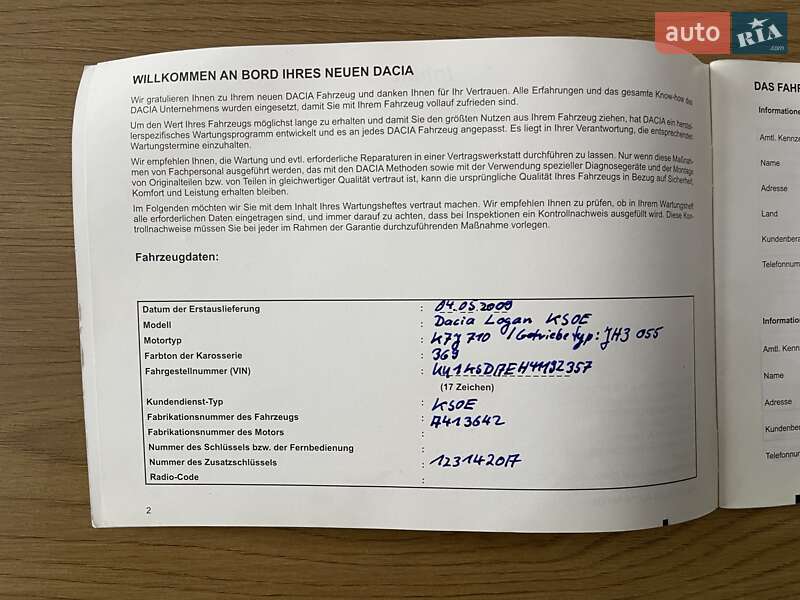 auto RIA .com
WILLKOMMEN AN BORD IHRES NEUEN DACIA
Wir gratulieren Ihnen zu Ihrem neuen DACIA Fahrzeug und danken Ihnen für Ihr Vertrauen. Alle Erfahrungen und das gesamte Know-how des
DACIA Unternehmens wurden eingesetzt, damit Sie mit Ihrem Fahrzeug vollauf zufrieden sind.
Um den Wert Ihres Fahrzeugs möglichst lange zu erhalten und damit Sie den größten Nutzen aus Ihrem Fahrzeug ziehen, hat DACIA ein herstel-
lerspezifisches Wartungsprogramm entwickelt und es an jedes DACIA Fahrzeug angepasst. Es liegt in Ihrer Verantwortung, die entsprechenden
Wartungstermine einzuhalten.
Wir empfehlen Ihnen, die Wartung und evtl. erforderliche Reparaturen in einer Vertragswerkstatt durchführen zu lassen. Nur wenn diese Maßnah-
men von Fachpersonal ausgeführt werden, das mit den DACIA Methoden sowie mit der Verwendung spezieller Diagnosegeräte und der Montage
von Originalteilen bzw. von Teilen in gleichwertiger Qualität vertraut ist, kann die ursprüngliche Qualität Ihres Fahrzeugs in Bezug auf Sicherheit,
Komfort und Leistung erhalten bleiben.
Im Folgenden möchten wir Sie mit dem Inhalt Ihres Wartungsheftes vertraut machen. Wir empfehlen Ihnen zu prüfen, ob in Ihrem Wartungsheft
alle erforderlichen Daten eingetragen sind, und immer darauf zu achten, dass bei Inspektionen ein Kontrollnachweis ausgefüllt wird. Diese Kon-
trollnachweise müssen Sie bei jeder im Rahmen der Garantie durchzuführenden Maßnahme vorlegen.
Fahrzeugdaten:
Datum der Erstauslieferung : 04.05.2009
Modell : Dacia Logan KSOE
Motortyp : K7J 710 / Getriebetyp: JH3 055
Farbton der Karosserie : 369
Fahrgestellnummer (VIN) : UU1KSD7EH41192357
(17 Zeichen)
Kundendienst-Typ : KSOE
Fabrikationsnummer des Fahrzeugs : A413642
Fabrikationsnummer des Motors :
Nummer des Schlüssels bzw. der Fernbedienung :
Nummer des Zusatzschlüssels :
Radio-Code :
2
DAS FAHR
Informatione
Amtl. Kennze
Name
Adresse
Land
Kundenbera
Telefonnum
Information
Amtl. Kennz
Name
Adresse
Kundenber
Telefonnur